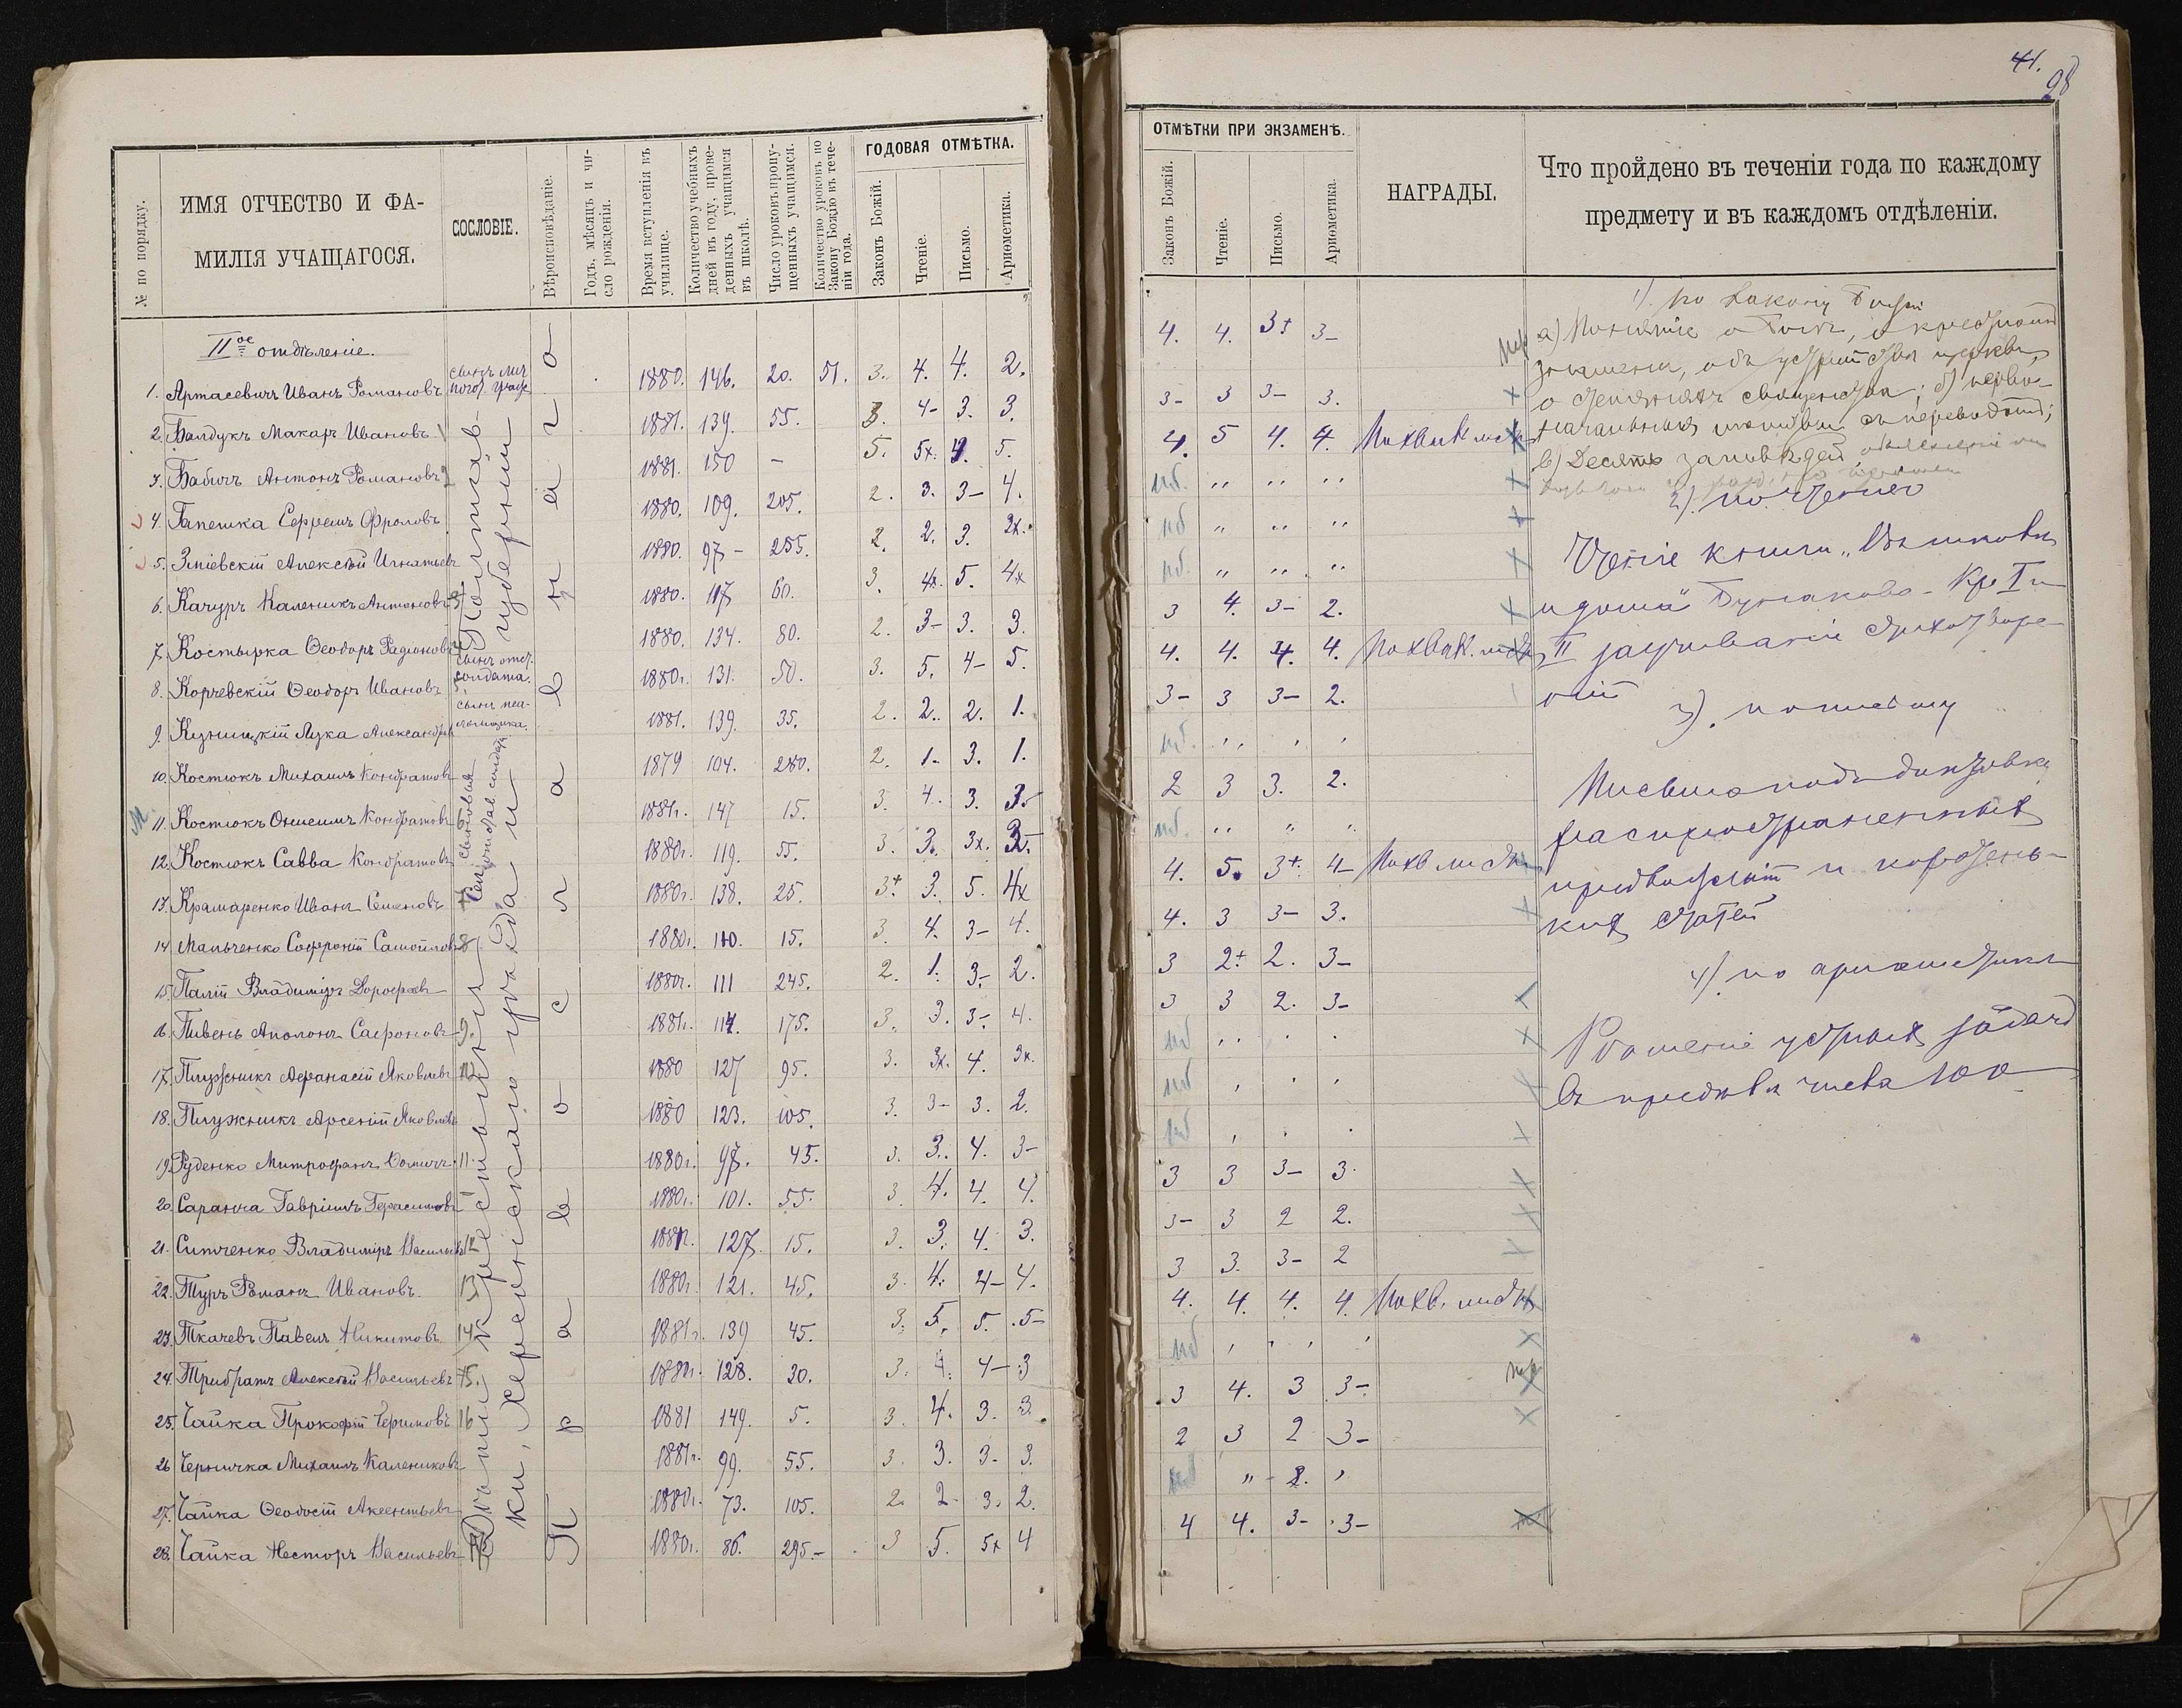 № по порядку.
ИМЯ ОТЧЕСТВО И ФА-
МИЛІЯ УЧАЩАГОСЯ.
СОСЛОВІЕ.
Вѣроисповѣданіе.
Годъ, мѣсяцъ и чи-
сло рожденія.
Время вступленія въ
училище.
Количество учебныхъ
дней въ году, прове-
денныхъ учащимся
въ школѣ.
Число уроковъ пропу-
щенныхъ учащимся.
Количество уроковъ по
Закону Божію въ тече-
ніи года.
ГОДОВАЯ ОТМѢТКА.
Законъ Божій.
Чтеніе.
Письмо.
Ариѳметика.
IIое отдѣленіе.
1. Артасевичъ Иванъ Романовъ 1880. 146. 20. 51. 3. 4. 4. 2.
2. Балдукъ Макаръ Ивановъ 1881. 139. 55. 3. 4- 3. 3.
3. Бабичъ Антонъ Романовъ 1881. 150 — 5. 5х. 4. 5.
4. Гапешка Ефремъ Фроловъ 1880. 109. 205. 2. 3. 3- 4.
5. Зміевскій Алексѣй Игнатьевъ 1880. 97- 255. 2. 2. 3. 2х.
6. Качуръ Каленикъ Антоновъ 1880. 117 60. 3. 4х. 5. 4х
7. Костырка Ѳеодоръ Радіоновъ 1880. 134. 80. 2. 3- 3. 3.
8. Корчевскій Ѳеодоръ Ивановъ сынъ отст. солдата. 1880г. 131. 50. 3. 5. 4- 5.
9. Кузницкій Лука Александровъ 1881. 139. 35. 2. 2. 2. 1.
10. Костюкъ Михаилъ Кондратовъ 1879 104. 280. 2. 1- 3. 1.
11. Костюкъ Онисимъ Кондратовъ 1881г. 147 15. 3. 4. 3. 3-
12. Костюкъ Савва Кондратовъ 1880г. 119. 55. 3. 3. 3х. 3-
13. Крамаренко Иванъ Семеновъ 1880г. 138. 25. 3+ 3. 5. 4х
14. Мальченко Софроній Самойловъ 8 1880г. 110. 15. 3. 4. 3- 4.
15. Палій Владиміръ Дорофѣевъ 1880г. 111 245. 2. 1. 3- 2.
16. Пивень Аполонъ Сафроновъ 9. 1881г. 114. 175. 3. 3. 3- 4.
17. Плужникъ Аѳанасій Яковлевъ 10 1880 127 95. 3. 3х. 4. 3х.
18. Плужникъ Арсеній Яковлевъ 1880 123. 105. 3. 3- 3. 2.
19. Руденко Митрофанъ Ѳомичъ 11. 1880г. 97. 45. 3. 3. 4. 3-
20. Саранча Гавріилъ Герасимовъ 1880г. 101. 55. 3. 4. 4. 4.
21. Ситченко Владиміръ Васильевъ 12 127. 15. 3. 3. 4. 3.
22. Туръ Романъ Ивановъ. 13 1880г. 121. 45. 3. 4. 4- 4.
23. Ткачевъ Павелъ Никитовъ 14 1881г. 139 45. 3. 5. 5. 5-
24. Трибратъ Алексѣй Васильевъ 15. 128. 30. 3. 4. 4- 3
25. Чайка Прокофій 16 1881 149. 5. 3. 4. 3. 3.
26. Чернички Михаилъ Калениковъ 1881г. 99. 55. 3. 3. 3. 3.
27. Чайка Ѳеодосій Аксентьевъ 1880г. 73. 105. 2. 2- 3. 2.
28. Чайка Несторъ Васильевъ 1880г. 86. 295- 3 5. 5х 4
крестьяне Полтавской губерніи
Херсонскаго уѣзда и
Православнаго
41.
98
ОТМѢТКИ ПРИ ЭКЗАМЕНѢ.
Законъ Божій.
Чтеніе.
Письмо.
Ариѳметика.
НАГРАДЫ.
Что пройдено въ теченіи года по каждому
предмету и въ каждомъ отдѣленіи.
4. 4. 3+ 3-
3- 3 3- 3.
4. 5 4. 4. Похвал. листъ
нб. ,, ,, ,,
нб ,, ,, ,,
нб. ,, ,, ,,
3 4. 3- 2.
4. 4. 4. 4. Похвал. листъ
3- 3 3- 2.
нб. ,, , ,
2 3 3. 2.
нб. ,, ,, ,,
4. 5. 3+. 4- Похв листъ
4. 3 3- 3.
3 2+. 2. 3-
3 3 2. 3-
нб ,, . .
нб , , ,
нб , . .
3 3 3- 3.
3- 3 2 2.
3 3. 3- 2
4. 4. 4. 4. Похв. листъ
нб , , , ,
3 4. 3 3-
2 3 2 3-
нб ,, 2. ,
4 4. 3- 3-
1). по Закону Божію
а) Понятіе о Богѣ, о крестномъ
знаменіи, объ устройствѣ церкви,
о степеняхъ священства; б) перво-
начальныя молитвы съ переводомъ;
в) Десять заповѣдей
2). по чтенію
Чтеніе книги „Въ школѣ
и дома" Бунакова. кн. I и
II заучиваніе стихотворе-
ній
3). по письму
Письмо подъ диктовку
распространенныхъ
предложеній и коротень-
кихъ статей
4). по ариѳметикѣ
Рѣшеніе устныхъ задачъ
въ предѣлѣ числа 100